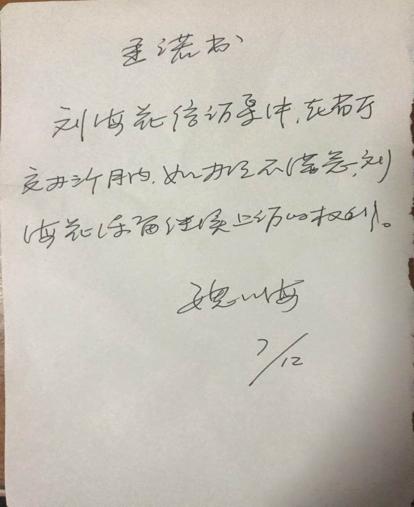 承诺书
刘海花信访事件,在省厅
交办三个月内,如办法不满意,刘
海花保留继续上访的权利。
魏川海
7/12